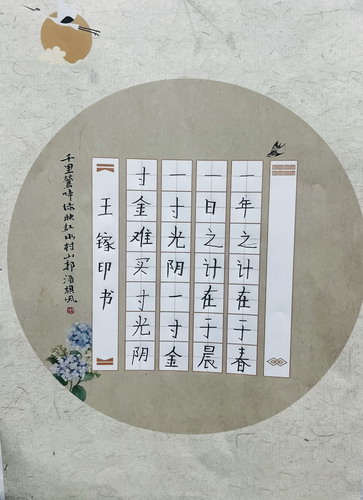 一年之计在于春
一日之计在于晨
一寸光阴一寸金
寸金难买寸光阴
王镓印书
千里莺啼绿映红水村山郭酒旗风